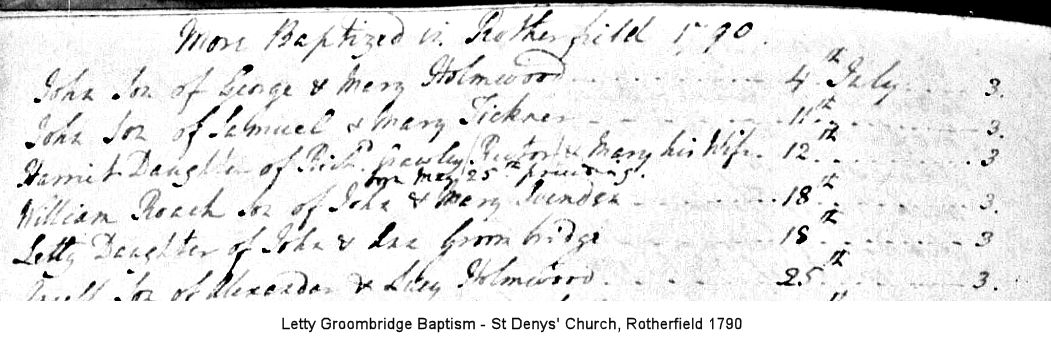 More Baptized in Rotherfield 1790.
John Son of George & Mary Holmwood 4th July 3.
John Son of Samuel & Mary Tickner 11th 3.
Harriet Daughter of Richd. Crawley (Rector) & Mary his Wife. 12th 3
born May 25th preceding.
William Roach Son of John & Mary 18th 3.
Letty Daughter of John & Ann Groombridge 18th 3
Son of Alexander & Lucy Holmwood 25th 3.
Letty Groombridge Baptism - St Denys' Church, Rotherfield 1790